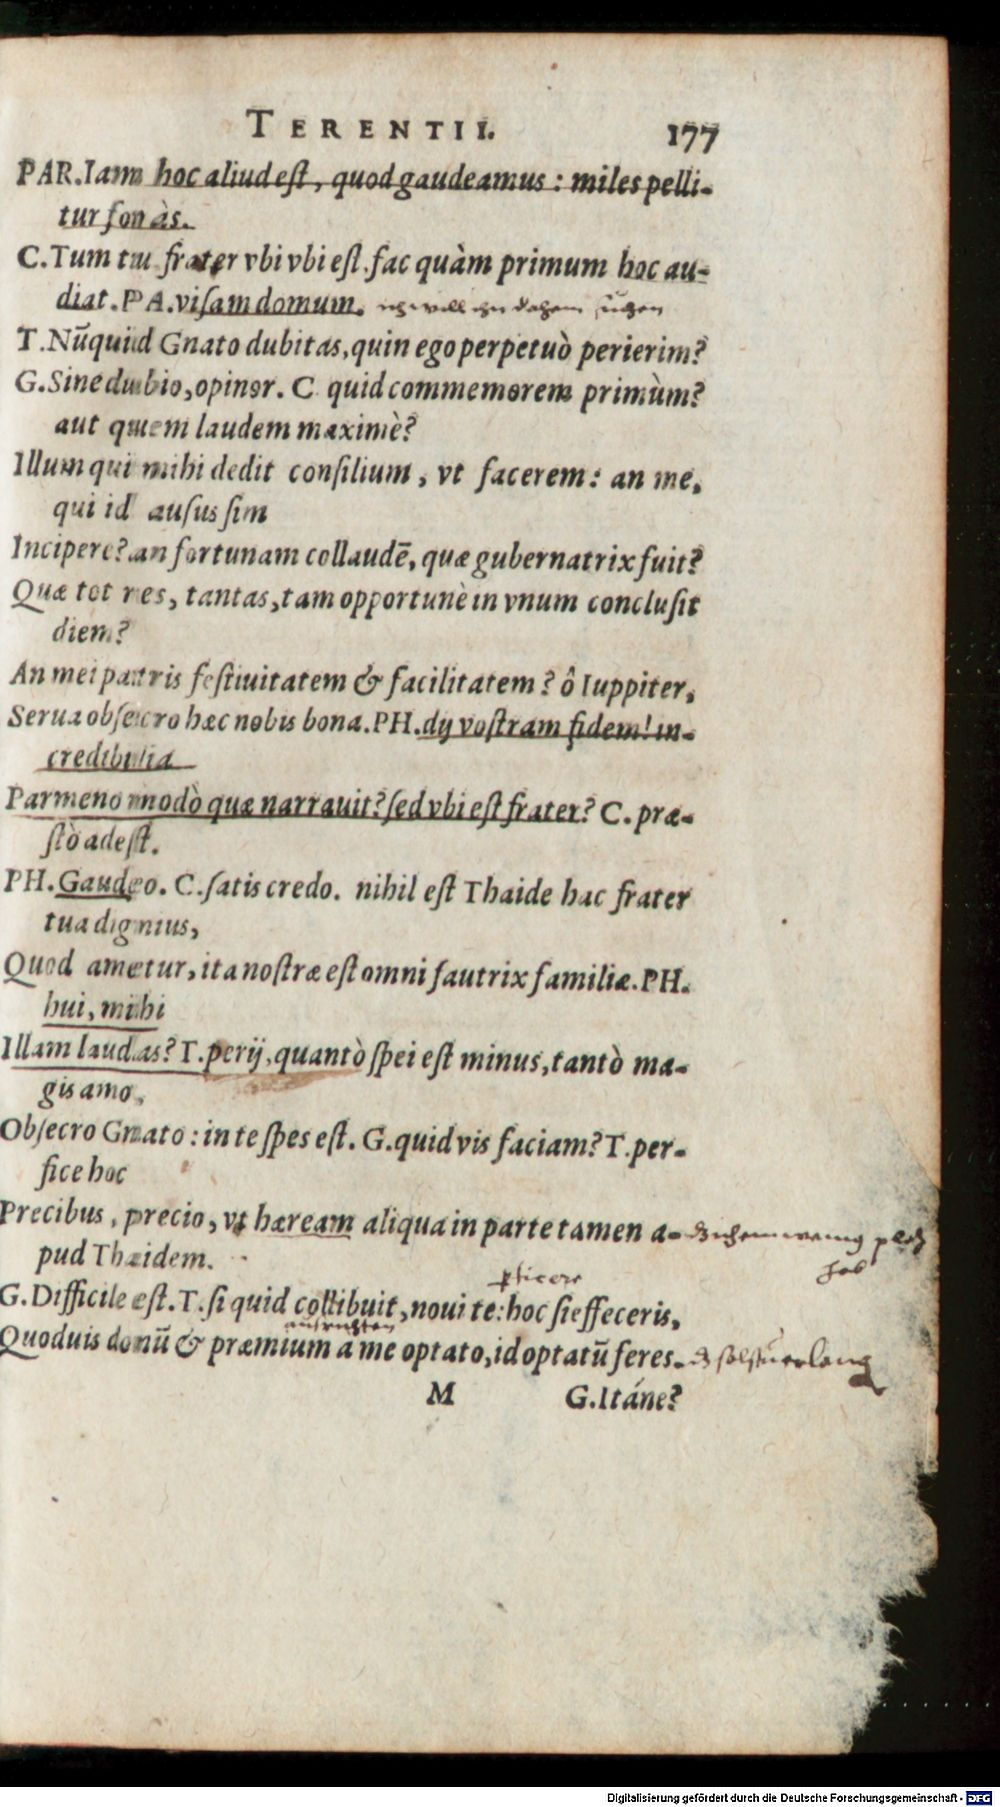 TERENTII. 177
PAR. Iam hoc aliud est, quod gaudeamus: miles pelli-
tur foràs.
C. Tum tu frater vbi vbi est. fac quàm primum hoc au-
diat. PA. visam domum. ich will ihn dahem suchen
T. Nūquid Gnato dubitas, quin ego perpetuò perierim?
G. Sine dubio, opinor. C quid commemorem primùm?
aut quem laudem maximè?
Illum qui mihi dedit consilium, vt facerem: an me,
qui id ausus sim
Incipere? an fortunam collaudē, quæ gubernatrix fuit?
Quæ tot res, tantas, tam opportunè in vnum conclusit
diem?
An mei patris festiuitatem & facilitatem? ô Iuppiter,
Serua obsecro hæc nobis bona. PH. dij vostram fidem! in-
credibilia
Parmeno modò quæ narrauit? sed vbi est frater? C. præ-
stò adest.
PH. Gaudeo. C. satis credo. nihil est Thaide hac frater
tua dignius,
Quod ametur, ita nostræ est omni fautrix familiæ. PH.
hui, mihi
Illam laudas? T. perij, quantò spei est minus, tantò ma-
gis amo,
Obsecro Gnato: in te spes est. G. quid vis faciam? T. per-
fice hoc
Precibus, precio, vt hæream aliqua in parte tamen a-
pud Thaidem.
G. Difficile est. T. si quid collibuit, noui te: hoc si effeceris,
Quoduis donū & præmium a me optato, id optatū feres.
M G. Itáne?
Digitalisierung gefördert durch die Deutsche Forschungsgemeinschaft - DFG